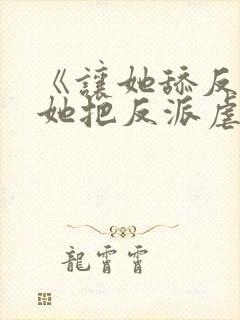 《讓她舔反
她把反派虐
龍霄霄